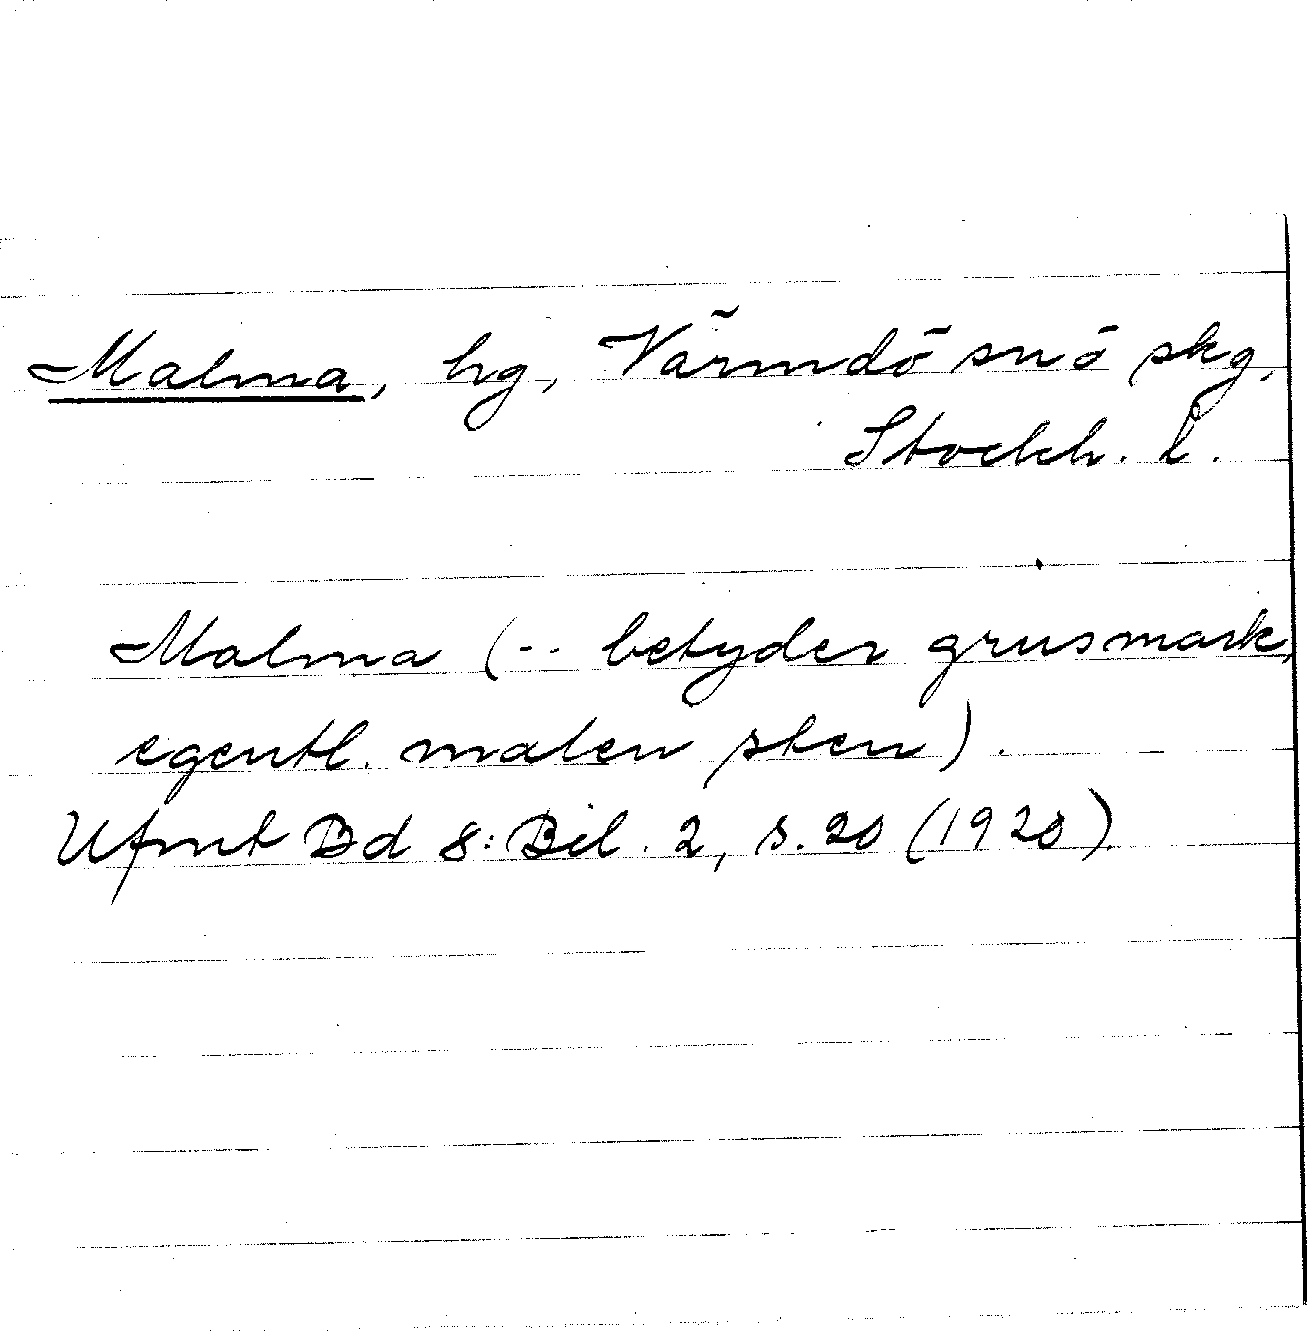 Malma, hg, Värmdö snö skg,
Stockh. l.
Malma (-- betyder grusmark,
egentl. malen sten).
Ufmt Bd 8: Bil. 2, s. 20 (1920).